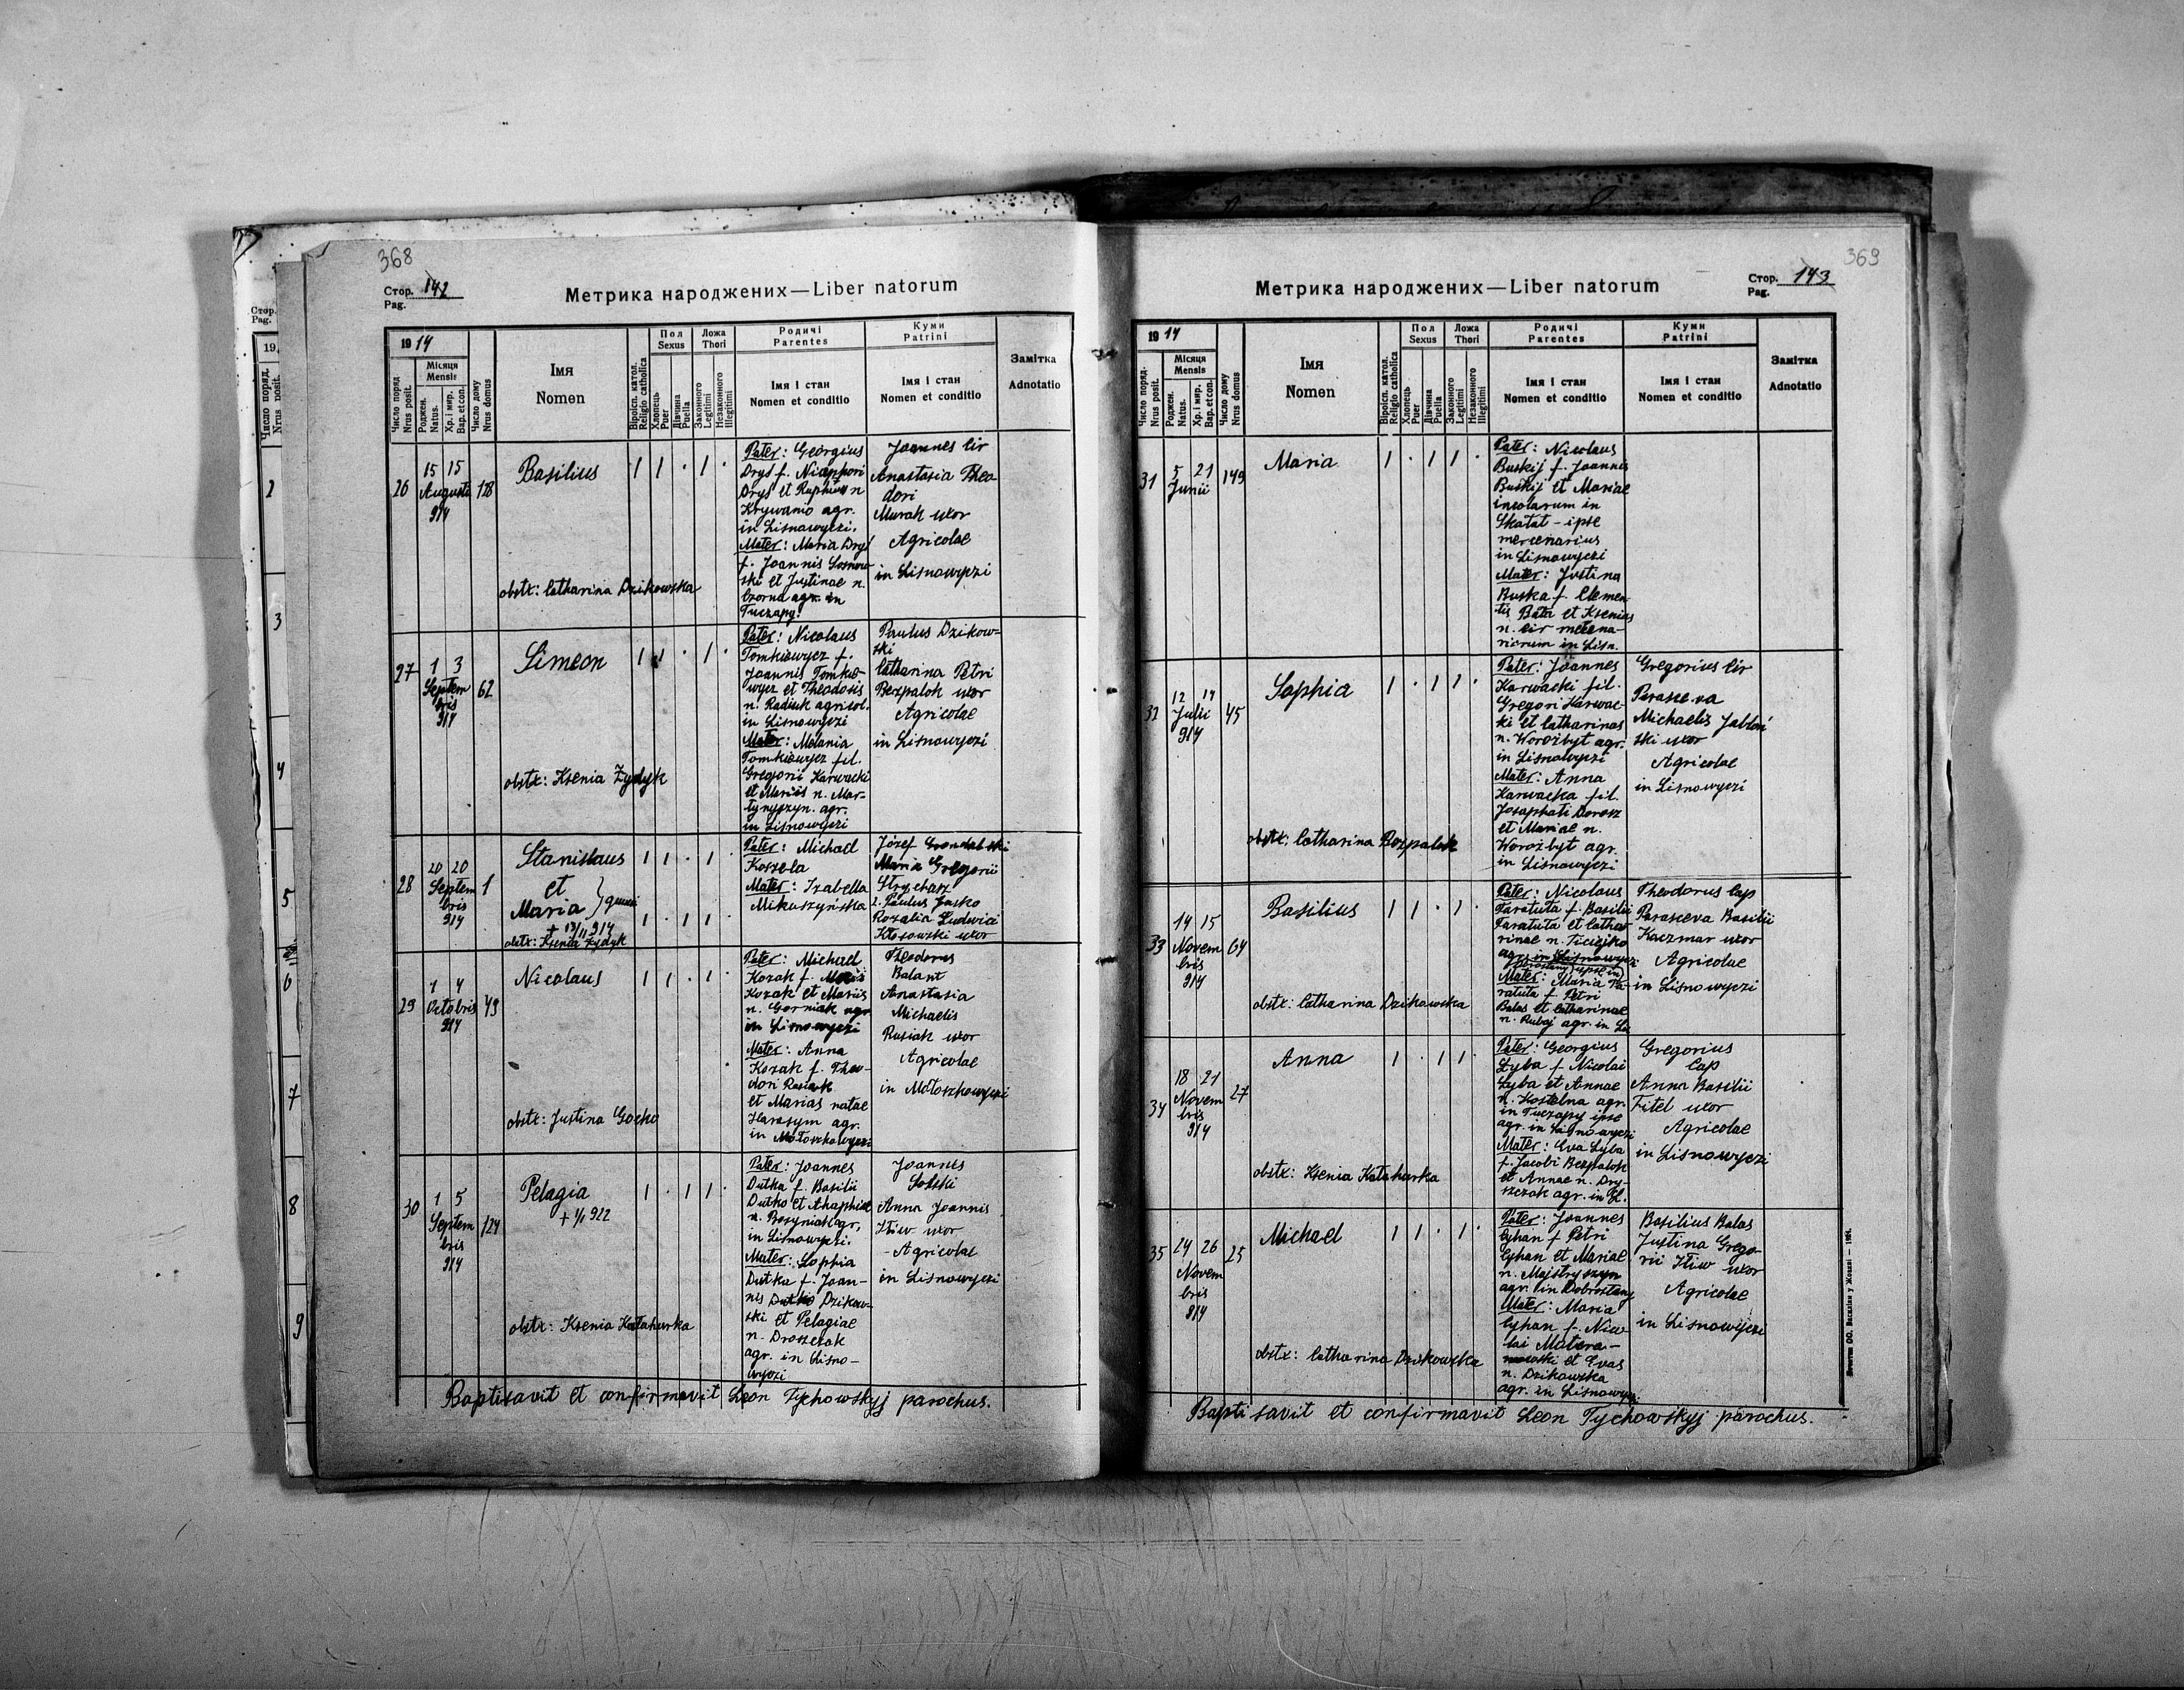 368
Стор. 142
Pag.
Метрика народжених—Liber natorum
1914
Число поряд.
Nrus posit.
Місяця
Mensis
Роджен.
Natus.
Хр. і мир.
Bap. et con.
Число дому
Nrus domus
Імя
Nomen
Віроісп. катол.
Religio catholica
Пол
Sexus
Хлопець
Puer
Дівчина
Puella
Ложа
Thori
Законного
Legitimi
Незаконного
Illegitimi
Родичі
Parentes
Імя і стан
Nomen et conditio
Куми
Patrini
Імя і стан
Nomen et conditio
Замітка
Adnotatio
26
15 15
Augusti
914
Basilius
obstx: Catharina Dzikowska
Pater: Georgius
Drys f. Nicephori
Drys et
agr.
in Lisnowyczi.
Mater: Maria Drys
f. Joannis Sosnow-
ski et Justinae n.
Czorna agr. in
Tuczapy.
Joannes Cir
Anastasia Theo-
dori
Murah uxor
Agricolae
in Lisnowyczi
27
1 3
Septem
bris
914
62
Simeon
obstx: Ksenia Zydyk
Pater: Nicolaus
Tomkiewycz f.
Joannis Tomkie-
wycz et Theodosis
n. Radiuk agricol.
in Lisnowyczi
Mater: Melania
Tomkiewycz fil.
Gregorii Karwacki
et Mariis n. Mar-
tynyszyn. agr.
in Lisnowyczi
Paulus Dzikow-
ski
Catharina Petri
Bezpalok uxor
Agricolae
in Lisnowyczi
28
20 20
Septem
bris
914
1
Stanislaus
et
Maria
+ 13/11 914
obstx: Ksenia Zydyk
Pater: Michael
Koszela
Mater: Izabella
Mikuszyńska
Józef
Maria Gregorii
Strycharz
2. Paulus Jasko
Rozalia Ludwici
Kłosowski uxor
29
1 4
Octobris
914
49
Nicolaus
obstx: Justina Gocko
Pater: Michael
Kozak f.
Kozak et Mariis
n. Gorniak agr
in Lisnowyczi
Mater: Anna
Kozak f. Theo-
dori Rusiak
et Marias natae
Harasym agr.
in Małoszkowyczi
Theodorus
Balant
Anastasia
Michaelis
Rusiak uxor
Agricolae
in Małoszkowyczi
30
1 5
Septem
bris
914
124
Pelagia
+ 1/1 922
obstx: Ksenia Katahurka
Pater: Joannes
Dutka f. Basilii
Dutko et Ahaphiae
n. agr.
in Lisnowyczi.
Mater: Sophia
Dutka f. Joan-
nis Dzikow-
ski et Pelagiae
n. Droszczak
agr. in Lisno-
wyczi
Joannes
Solski
Anna Joannis
Iliw uxor
Agricolae
in Lisnowyczi
Baptisavit et confirmavit Leon Tychowskyj parochus.
369
Стор. 143
Pag.
Метрика народжених—Liber natorum
1914
Число поряд.
Nrus posit.
Місяця
Mensis
Роджен.
Natus.
Хр. і мир.
Bap. et con.
Число дому
Nrus domus
Імя
Nomen
Віроісп. катол.
Religio catholica
Пол
Sexus
Хлопець
Puer
Дівчина
Puella
Ложа
Thori
Законного
Legitimi
Незаконного
Illegitimi
Родичі
Parentes
Імя і стан
Nomen et conditio
Куми
Patrini
Імя і стан
Nomen et conditio
Замітка
Adnotatio
31
5 21
Junii
149
Maria
Pater: Nicolaus
Buskij f. Joannis
Buskij et Mariae
incolarum in
Skałat - ipse
mercenarius
in Lisnowyczi
Mater: Justina
Buska f. Clemen
tis Bata et Ksenias
n. Cir mercena-
riorum in Lisn.
32
12 14
Julii
914
45
Sophia
obstx: Catharina Bezpalok
Pater: Joannes
Karwacki fil.
Gregori Karwac-
ki et Catharinas
n. Worożbyt agr.
in Lisnowyczi
Mater: Anna
Karwacka fil.
Josaphati Dorosz
et Mariae n.
Worożbyt agr.
in Lisnowyczi
Gregorius Cir
Parasceva
Michaelis Jabłoń
ski uxor
Agricolae
in Lisnowyczi
33
14 15
Novem
bris
914
64
Basilius
obstx: Catharina Dzikowska
Pater: Nicolaus
Taratuta f. Basilii
Taratuta et Catha-
rinae n.
Mater: Maria Ta-
ratuta f. Petri
Balas et Catharinae
n. Rubaj agr. in Lis
Theodorus Cap
Parasceva Basilii
Kaczmar uxor
Agricolae
in Lisnowyczi
34
18 21
Novem
bris
914
27
Anna
obstx: Ksenia Katahurka
Pater: Georgius
Łyba f Nicolai
Łyba et Annae
n. Kostelna agr.
in Tuczapy ipse
agr. in Lisnowyczi
Mater: Eva Łyba
f. Jacobi Bezpalok
et Annae n. Dry-
szczak agr. in Lis.
Gregorius
Cap
Anna Basilii
Fitel uxor
Agricolae
in Lisnowyczi
35
24 26
Novem
bris
914
25
Michael
obstx: Catharina Dzikowska
Pater: Joannes
Cyhan f Petri
Cyhan et Mariae
n. Majstryszyn
agr. in Dobrostany
Mater: Maria
Cyhan f. Nico-
lai Matwia-
nowski et Evas
n. Dzikowska
agr. in Lisnowyczi
Basilius Balas
Justina Grego-
rii Iliw uxor
Agricolae
in Lisnowyczi
Baptisavit et confirmavit Leon Tychowskyj parochus.